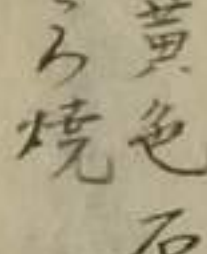 黄色石
ろ焼